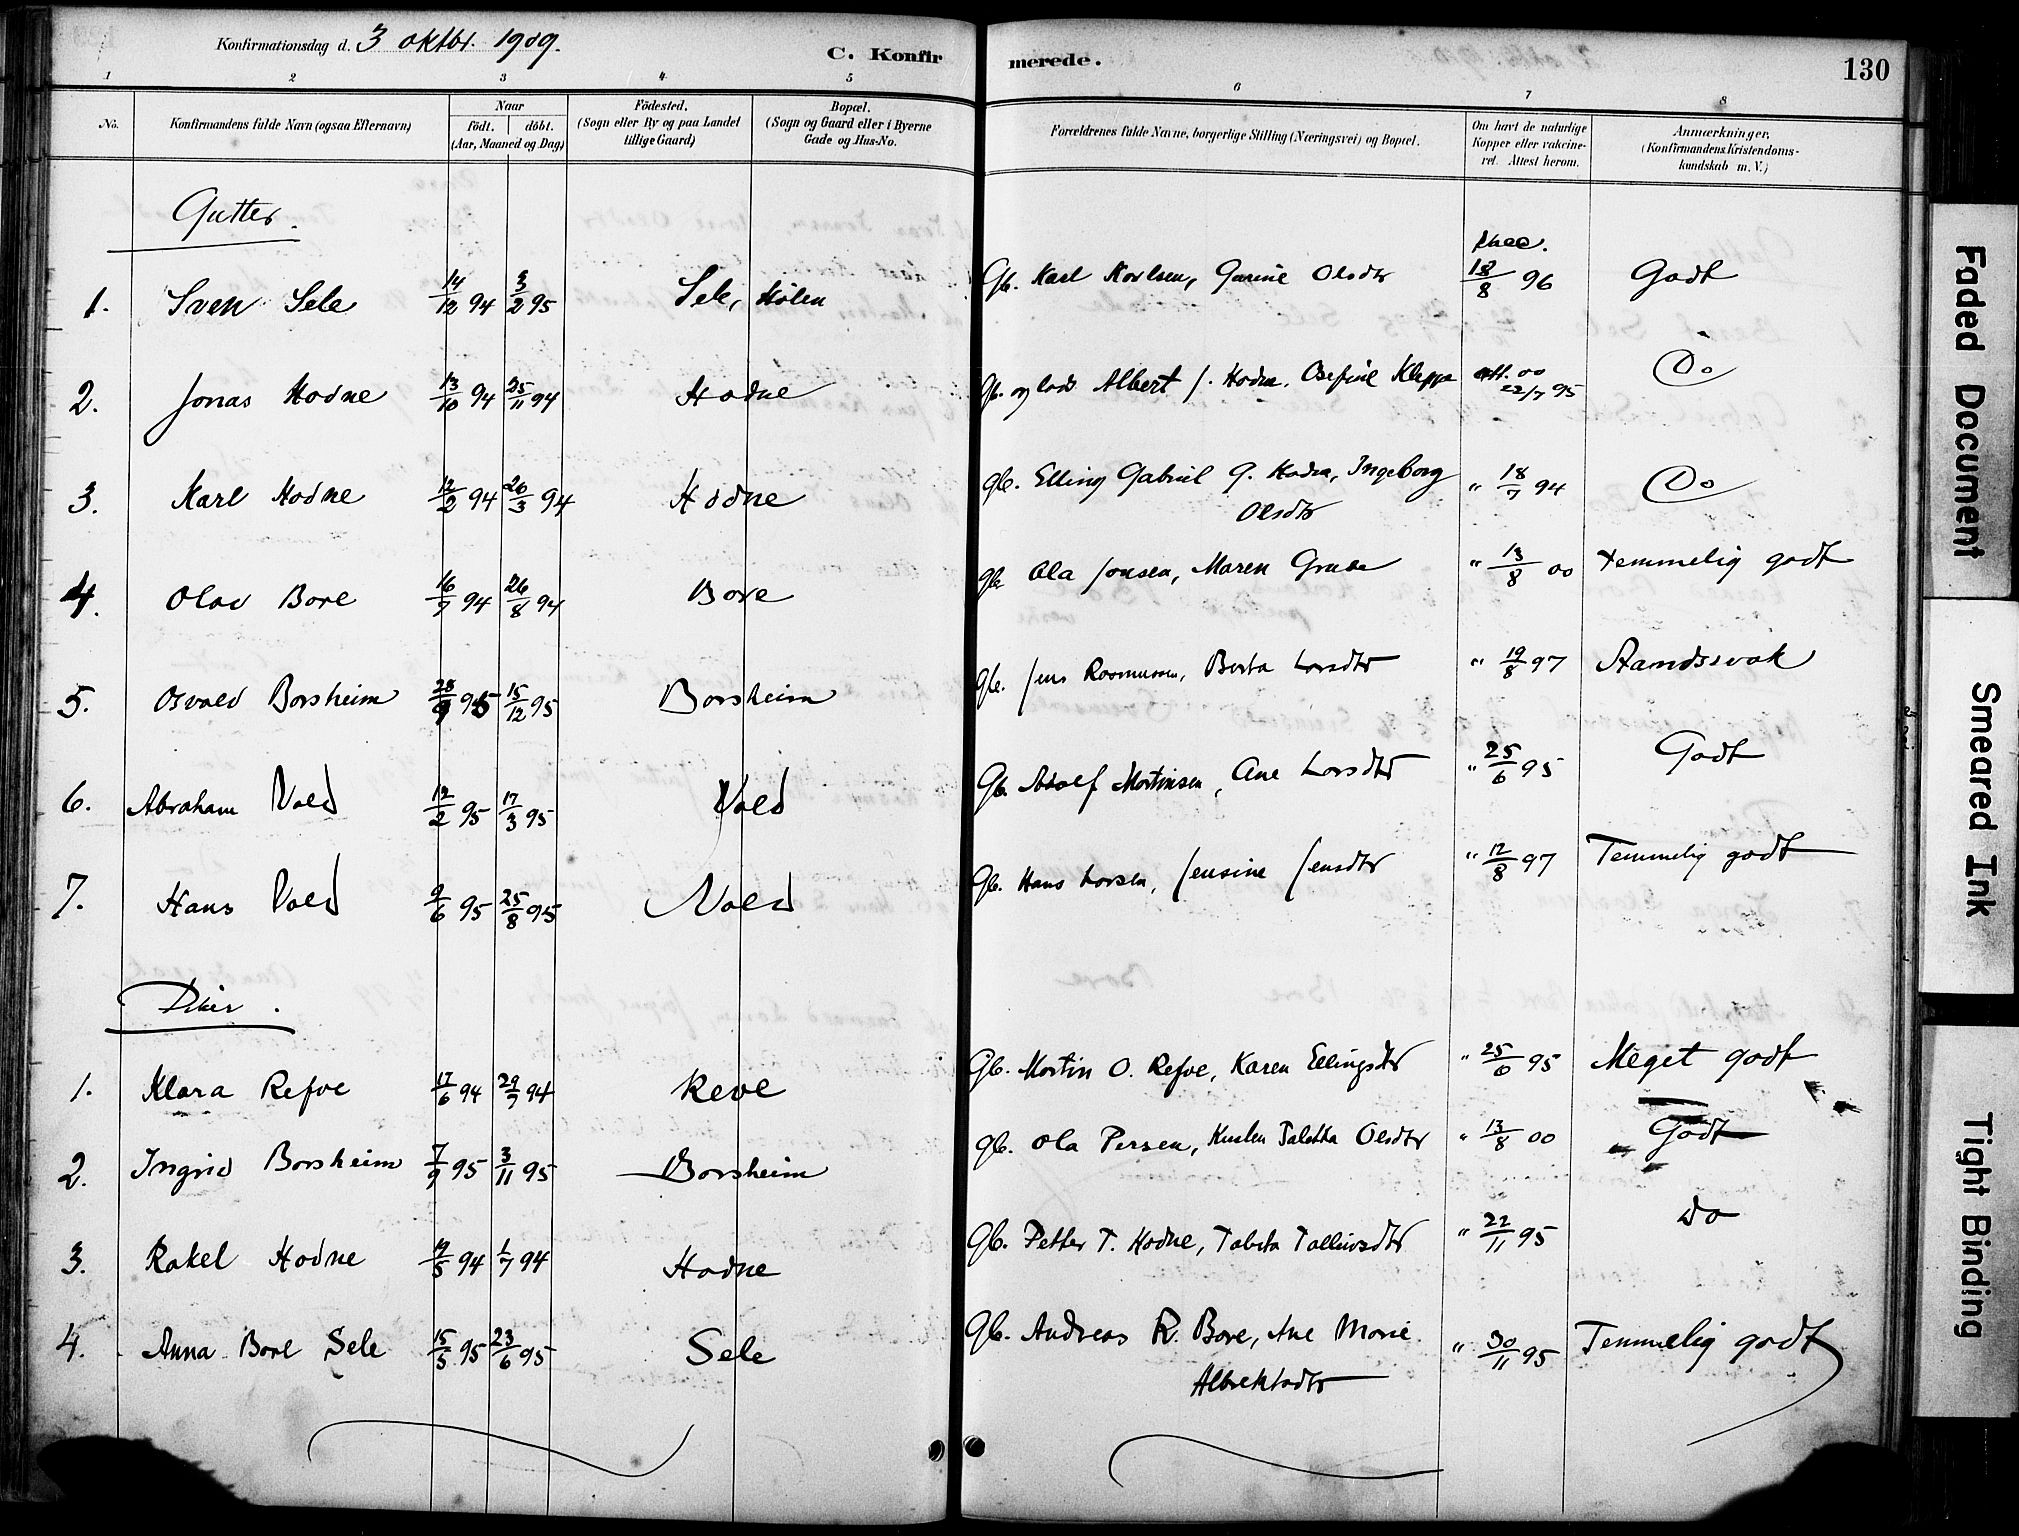 Konfirmationsdag d. 3 oktbr. 1909.
C. Konfirmerede.
130
1 2 3 4 5 6 7 8
No.
Konfirmandens fulde Navn (ogsaa Efternavn)
Naar
født. døbt.
(Aar, Maaned og Dag)
Fødested.
(Sogn eller By og paa Landet
tillige Gaard)
Bopæl.
(Sogn og Gaard eller i Byerne
Gade og Hus-No.
Forældrenes fulde Navne, borgerlige Stilling (Næringsvei) og Bopæl.
Om havt de naturlige
Kopper eller vakcine-
ret. Attest herom.
Anmærkninger,
(Konfirmandens Kristendoms-
kundskab m. V.)
Gutter.
1. Sven Sele 14/12 94 3/2 95 Sele, Hølen Gb. Karl Karlsen, Gurine Olsdtr 18/8 96 Godt
2. Jonas Hodne 13/10 94 25/11 94 Hodne Gb. Albert J. Hodne, Kleppe att. 22/7 95 Do
3. Karl Hodne 12/2 94 26/3 94 Hodne gb. Elling Gabriel G. Hodne, Ingeborg
Olsdtr " 18/7 94 Do
4. Olav Bore 16/7 94 26/8 94 Bore gb. Ola Jonsen, Maren Grude " 13/8 00 temmelig godt
5. Osvald Borsheim 28/9 95 15/12 95 Borsheim gb. Jens Rasmussen, Berta Larsdtr " 19/8 97 Aandssvak
6. Abraham Vold 12/2 95 17/3 95 Vold Gb. Adolf Mortinsen, Ane Larsdtr " 25/6 95 Godt
7. Hans Vold 9/6 95 25/8 95 Vold Gb. Hans Larsen, Jensine Jensdtr " 12/8 97 Temmelig godt
Piker.
1. Klara Refve 17/6 94 29/7 94 Reve Gb. Mortin O. Refve, Karen Ellingsdtr " 25/6 95 Meget godt
2. Ingrid Borsheim 7/9 95 3/11 95 Borsheim gb. Ola Persen, Taletha Olsdtr " 13/8 00 Godt
3. Rakel Hodne 19/5 94 1/7 94 Hodne Gb. Petter T. Hodne, Tabita Tallivsdtr " 22/11 95 Do
4. Anna Bore Sele 15/5 95 23/6 95 Sele Gb. Andreas R. Bore, Ane Marie
Albrektsdtr " 30/11 95 Temmelig godt
Faded Document
Smeared Ink
Tight Binding